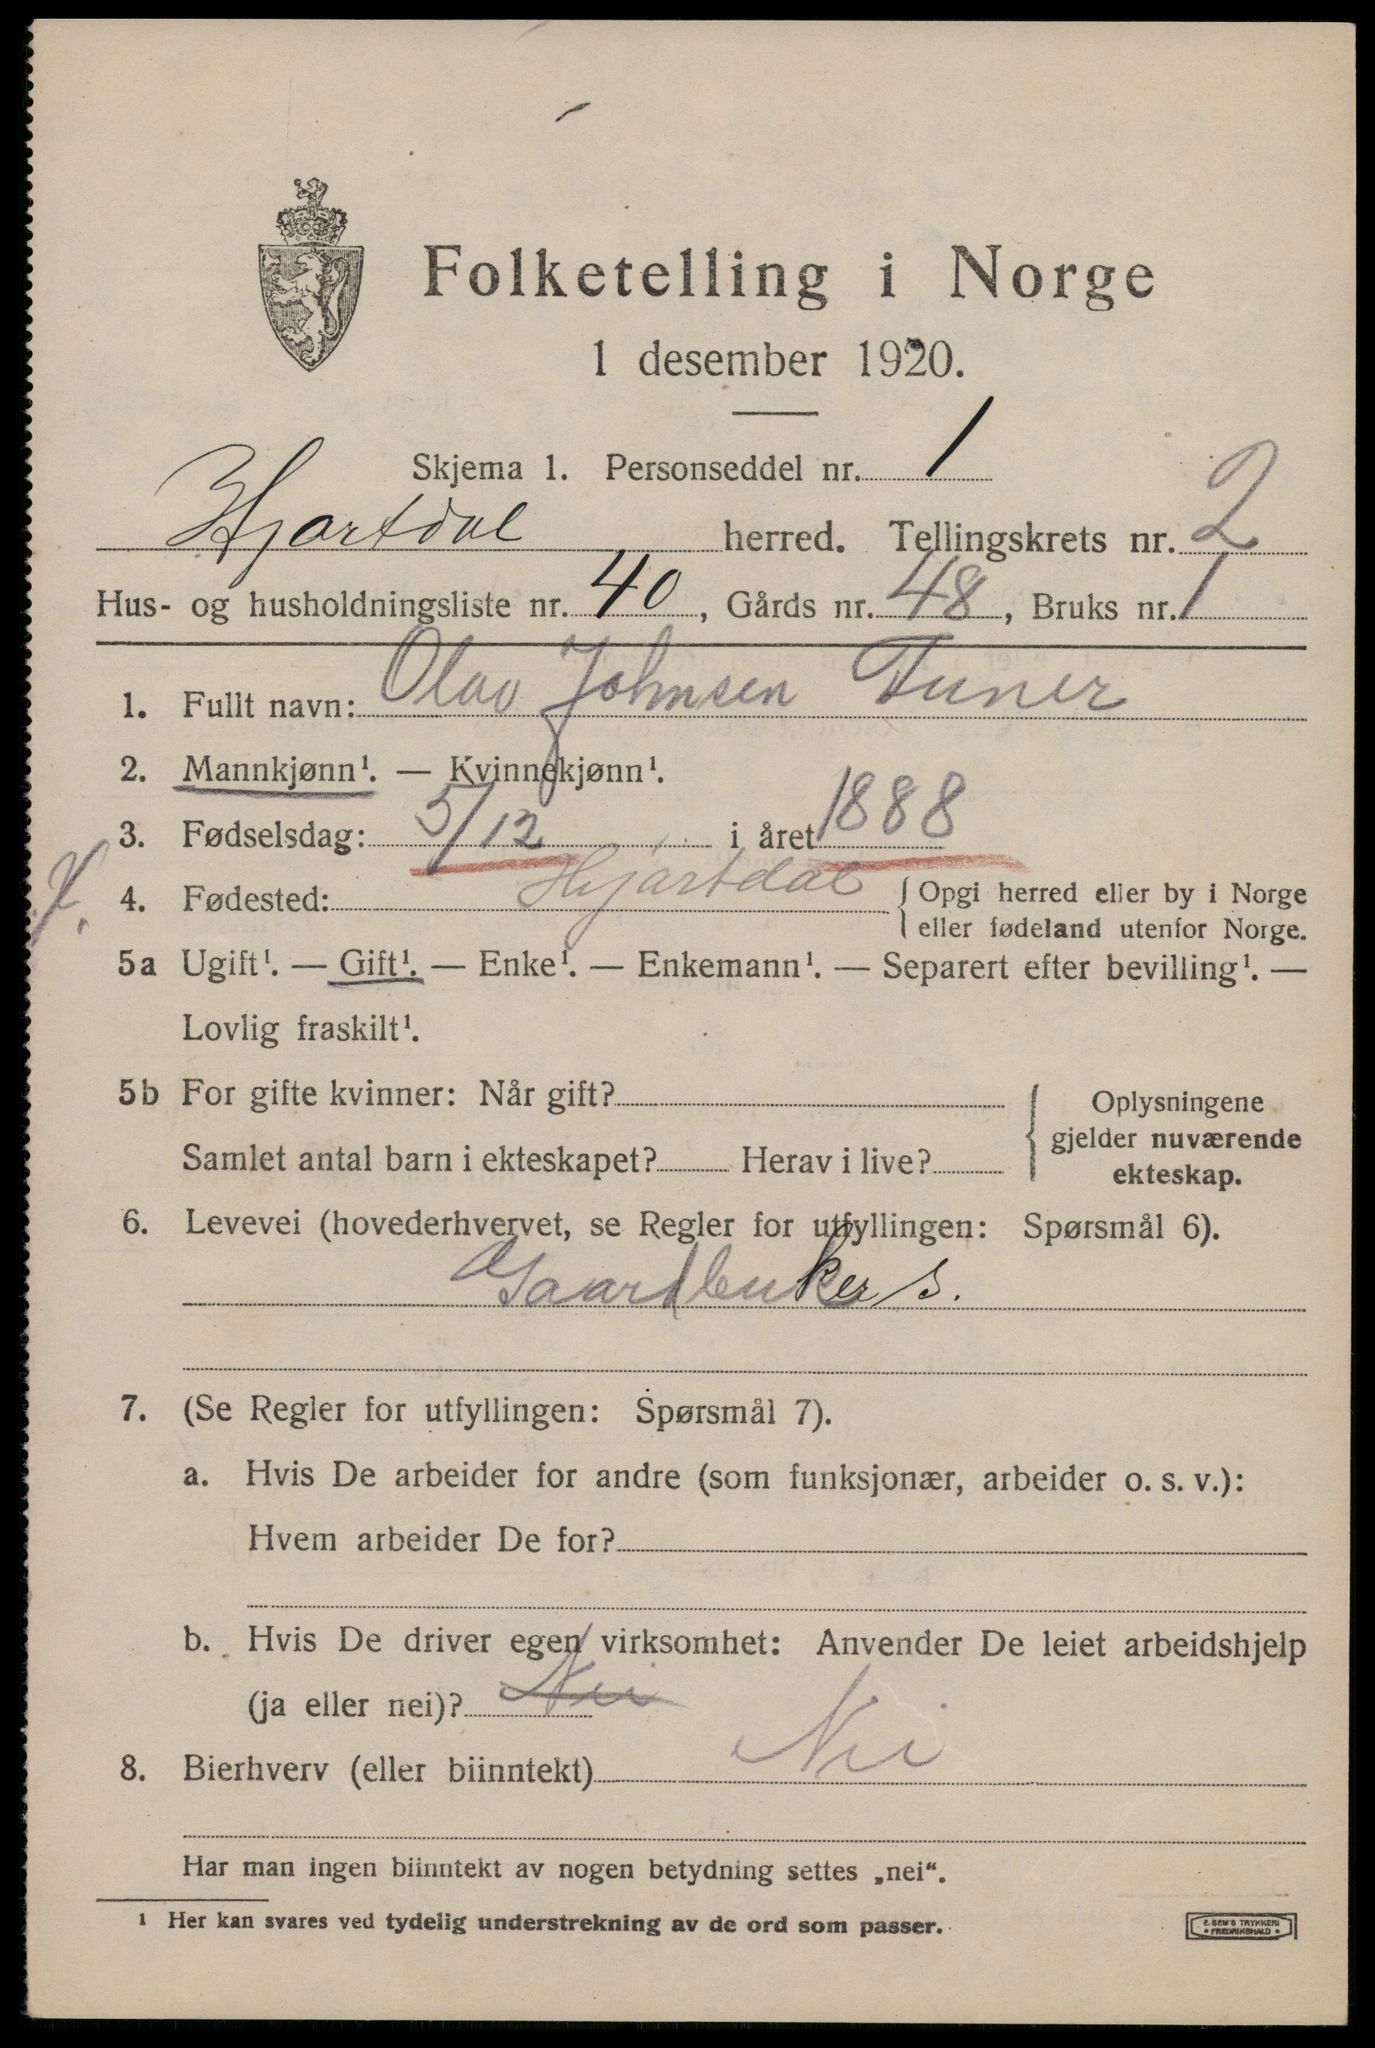 Folketelling i Norge
1 desember 1920.
Skjema 1. Personseddel nr. 1
Hjartdal herred. Tellingskrets nr. 2
Hus- og husholdningsliste nr. 40, Gårds nr. 48, Bruks nr. 1
1. Fullt navn: Olav Johnsen Tuner
2. Mannkjønn¹. — Kvinnekjønn¹.
3. Fødselsdag: 5/12 i året 1888
4. Fødested: Hjartdal { Opgi herred eller by i Norge
eller fødeland utenfor Norge.
5a Ugift¹. — Gift¹. — Enke¹. — Enkemann¹. — Separert efter bevilling¹. —
Lovlig fraskilt¹.
5b For gifte kvinner: Når gift?
Samlet antal barn i ekteskapet? Herav i live?
{ Oplysningene
gjelder nuværende
ekteskap.
6. Levevei (hovederhvervet, se Regler for utfyllingen: Spørsmål 6).
Gaardbruker s.
7. (Se Regler for utfyllingen: Spørsmål 7).
a. Hvis De arbeider for andre (som funksjonær, arbeider o. s. v.):
Hvem arbeider De for?
b. Hvis De driver egen virksomhet: Anvender De leiet arbeidshjelp
(ja eller nei)? Nei
8. Bierhverv (eller biinntekt) Nei
Har man ingen biinntekt av nogen betydning settes „nei“.
¹ Her kan svares ved tydelig understrekning av de ord som passer.
E. SEM'S TRYKKERI
* FREDRIKSHALD *